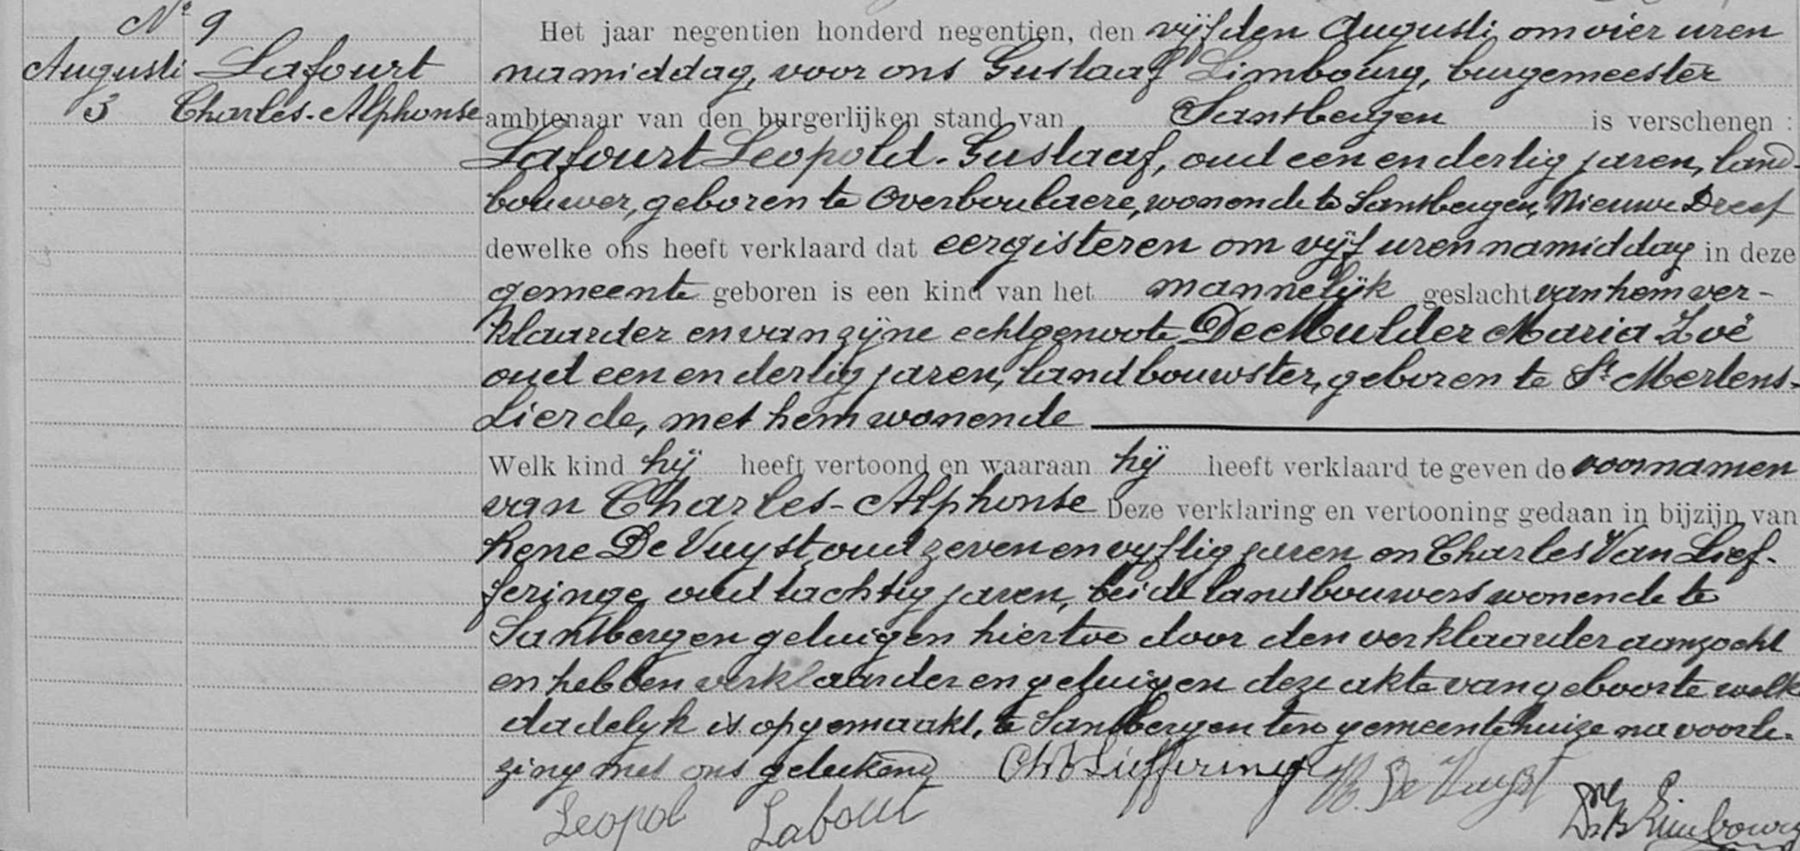 Nr 9
Augusti
3
Lafourt
Charles-Alphonse
Het jaar negentien honderd negentien, den vijfden Augusti, om vier uren
namiddag, voor ons Gustaaf Limbourg, burgemeester
ambtenaar van den burgerlijken stand van Santbergen is verschenen :
Lafourt Leopold-Gustaaf, oud een en dertig jaren, land-
bouwer, geboren te Overboulaere, wonende te Santbergen, Nieuwe Dreef
dewelke ons heeft verklaard dat eergisteren om vijf uren namiddag in deze
gemeente geboren is een kind van het mannelijk geslacht van hem ver-
klaarder en van zijne echtgenoote De Mulder Maria Zoë
oud een en dertig jaren, landbouwster, geboren te St Mertens-
Lierde, met hem wonende
Welk kind hij heeft vertoond en waaraan hij heeft verklaard te geven de voornamen
van Charles-Alphonse Deze verklaring en vertooning gedaan in bijzijn van
Rene De Vuyst oud zeven en vyftig jaren en Charles Van Lief-
feringe oud tachtig jaren, beide landbouwers wonende te
Santbergen getuigen hiertoe door den verklaarder aanzocht
en hebben verklaarder en getuigen deze akte van geboorte welk
dadelyk is opgemaakt, te Santbergen ten gemeentehuize na voorle-
zing met ons geteekend
Leopol Lafourt
De Vuyst
Limbourg